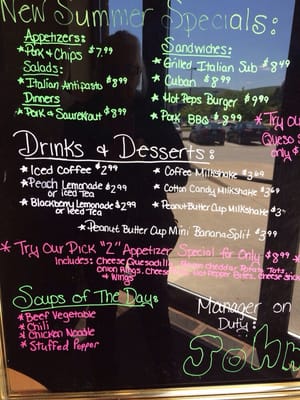 New Summer Specials:
Appetizers:
* Pork & Chips $7.99
Salads:
* Italian Antipasto $8.99
Dinners
* Pork & Saurekraut $8.99
Sandwiches:
* Grilled Italian Sub $8.49
* Cuban $8.99
* Hot Peps Burger $9.99
* Pork BBQ $8.99
* Try our
Queso
only $
Drinks & Desserts:
* Iced Coffee $2.99
* Peach Lemonade $2.99
or Iced Tea
* Blackberry Lemonade $2.99
or Iced Tea
* Coffee Milkshake $3.69
* Cotton Candy Milkshake $3.69
* Peanut Butter Cup Milkshake $3.
* Peanut Butter Cup Mini Banana Split $3.99
* Try Our Pick "2" Appetizer Special for Only $8.99 *
Includes: Cheese Quesadilla, cheddar Potato Tots,
Onion Rings, Hot Pepper Bites, Cheese
& Wings
Soups of The Day:
* Beef Vegetable
* Chili
* Chicken Noodle
* Stuffed Pepper
Manager on
Duty:
John